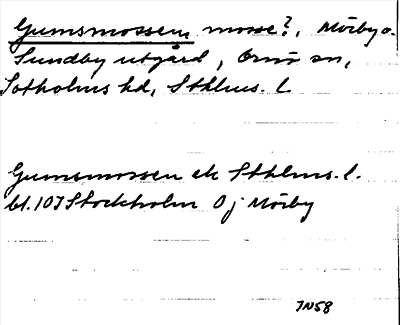 Gumsmossen mosse?, Mörby o.
Sundby utgård, Ornö sn,
Sotholms hd, Sthlms. l.
Gumsmossen ek Sthlms. l.
bl. 107 Stockholm Oj Mörby
JN58